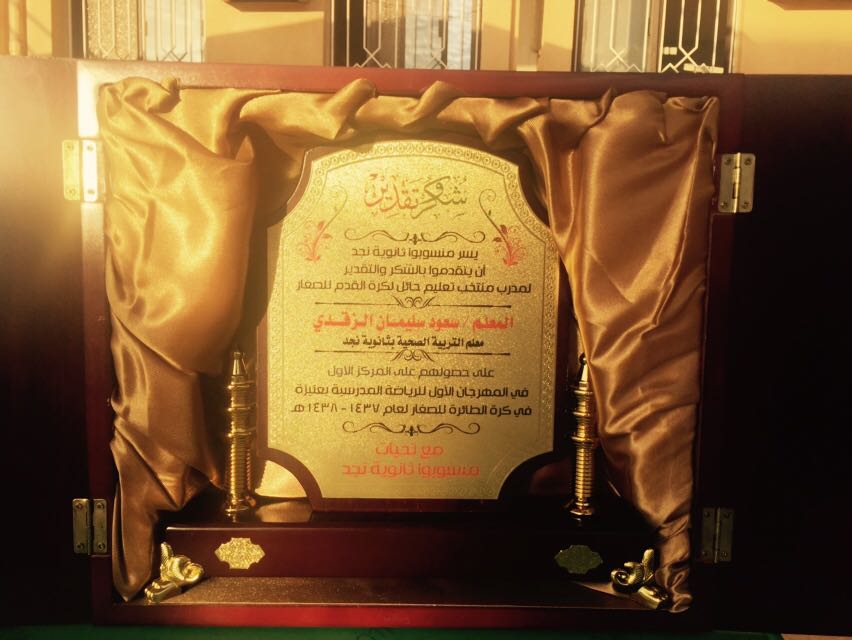 شكر وتقدير
يسر منسوبوا ثانوية نجد
أن يتقدموا بالشكر والتقدير
لمدرب منتخب تعليم حائل لكرة القدم للصغار
المعلم / سعود سليمان الزقدي
معلم التربية الصحية بثانوية نجد
على حصولهم على المركز الأول
في المهرجان الأول للرياضة المدرسية بعنيزة
في كرة الطائرة للصغار لعام ١٤٣٧ - ١٤٣٨ هـ
مع تحيات
منسوبوا ثانوية نجد